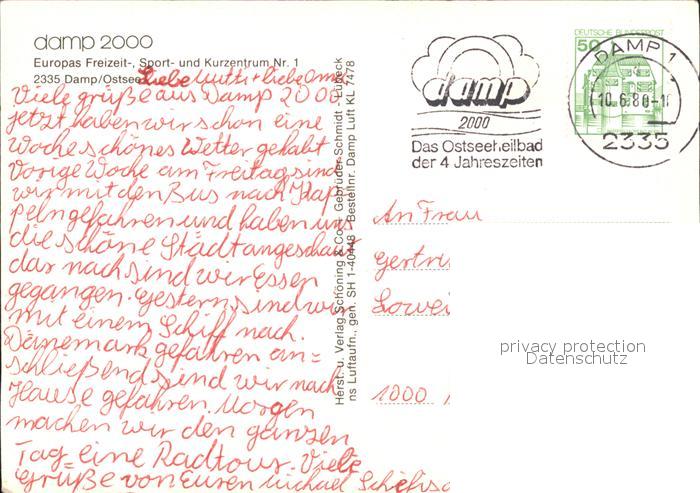 damp 2000
Europas Freizeit-, Sport- und Kurzentrum Nr. 1
2335 Damp/Ostsee
Liebe Mutti + liebe Oma
Viele grüße aus Damp 2000
jetzt haben wir schon eine
Woche schönes Wetter gehabt
Vorige Woche am Freitag sind
wir mit den Bus nach Kap
peln gefahren und haben uns
die schöne Städt angeschau
dar nach sind wir Essen
gegangen. Gestern sind wir
mit einem Schiff nach.
Dänemark gefahren an=
schließend sind wir nach
Hause gefahren. Morgen
machen wir den ganzen
Tag eine Radtour. Viele
Grüße von Euren Michael
Herst. u. Verlag Schöning & Co + Gebrüder Schmidt · Lübeck
ns Luftaufn., gen. SH 1-40448 Bestellnr. Damp Luft KL 7478
damp
2000
Das Ostseeheilbad
der 4 Jahreszeiten
DEUTSCHE BUNDESPOST
50
DAMP 1
10.6.80-1
2335
An Frau
Gertru
1000
privacy protection
Datenschutz